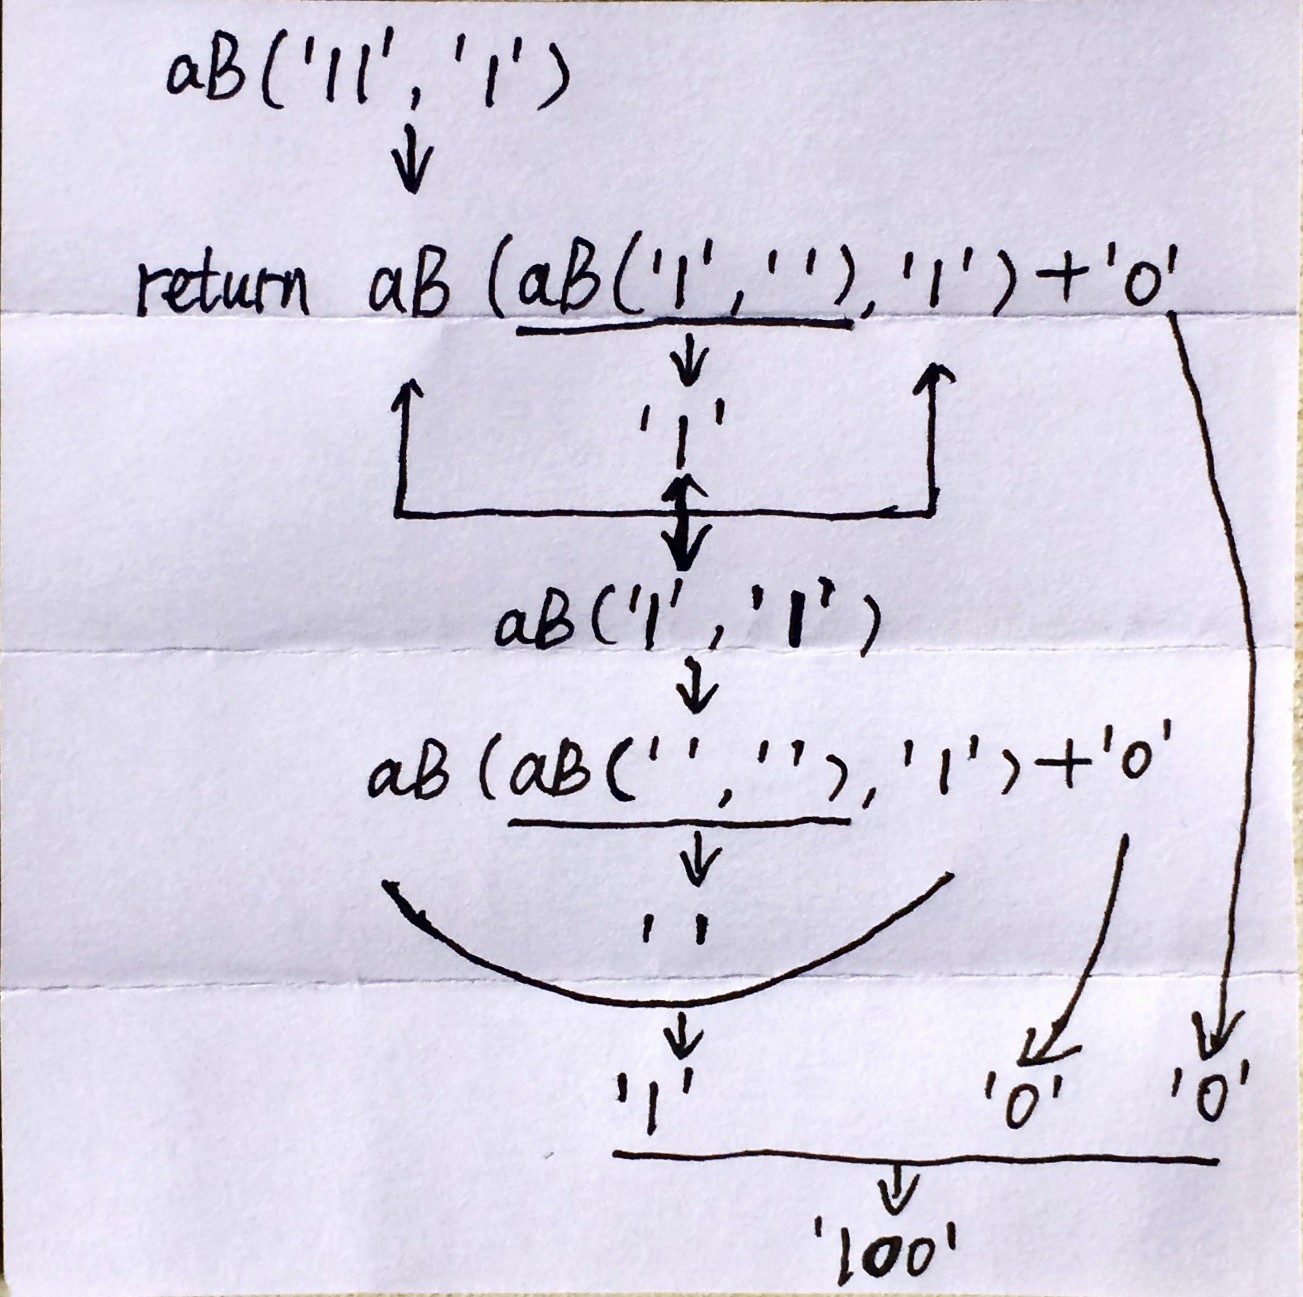 aB('11', '1')
return aB(aB('1', ''), '1')+'0'
'1'
aB('1', '1')
aB(aB('', ''), '1')+'0'
''
'1' '0' '0'
'100'